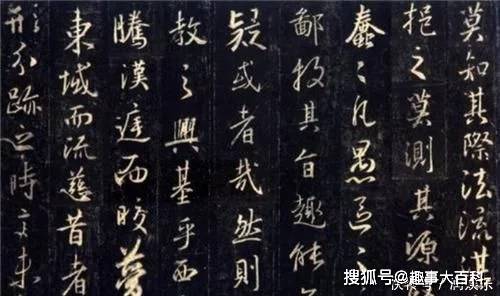 莫知其際法流
挹之莫測其源
蠢々凡愚區々
鄙投其旨趣能
疑或者哉然則
教之興基乎西
騰漢庭而皎夢
東域而流慈昔者
形分跡之時言未
搜狐号@趣事大百科